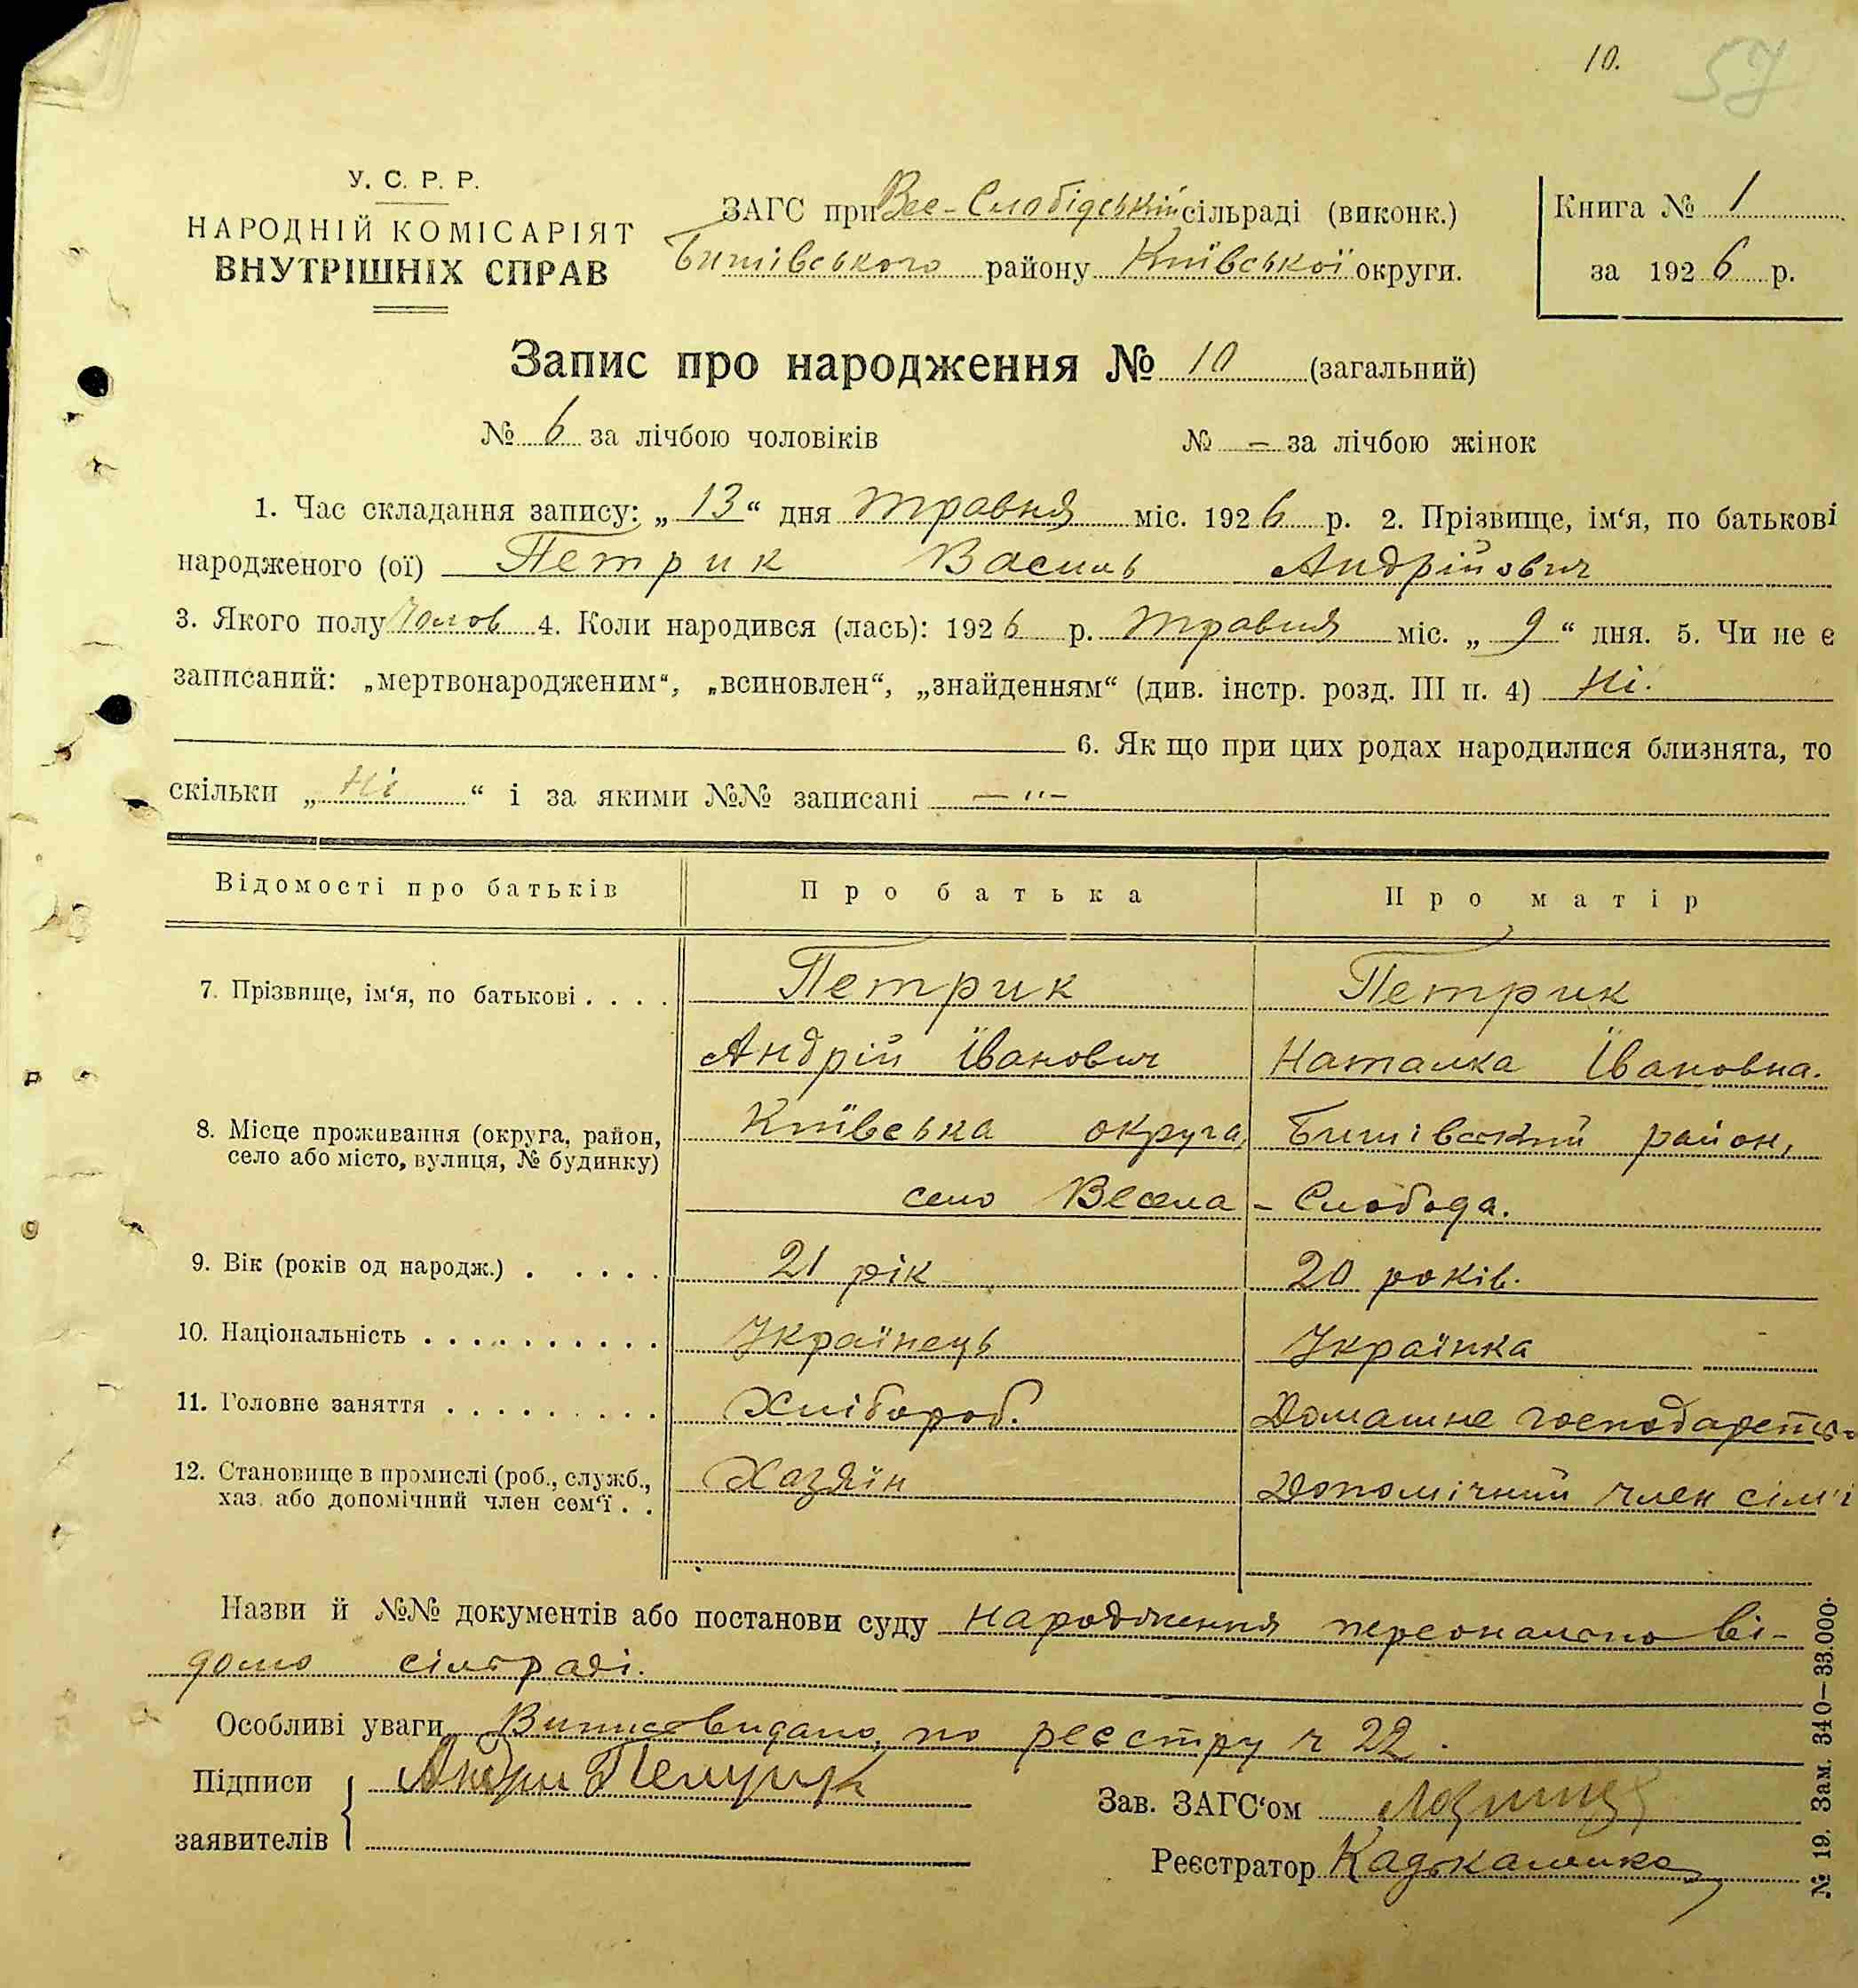 10.
57
У. С. Р. Р.
НАРОДНІЙ КОМІСАРІЯТ
ВНУТРІШНІХ СПРАВ
ЗАГС при Вес-Слобідській сільраді (виконк.)
Бишівського району Київської округи.
Книга № 1
за 1926 р.
Запис про народження № 10 (загальний)
№ 6 за лічбою чоловіків № = за лічбою жінок
1. Час складання запису: „13“ дня травня міс. 1926 р. 2. Прізвище, ім‘я, по батькові
народженого (ої) Петрик Василь Андрійович
3. Якого полу Чолов 4. Коли народився (лась): 1926 р. травня міс. „9“ дня. 5. Чи не є
записаний: „мертвонародженим“, „всиновлен“, „знайденням“ (див. інстр. розд. III п. 4) Ні.
6. Як що при цих родах народилися близнята, то
скільки „Ні“ і за якими №№ записані — "–
Відомості про батьків Про батька Про матір
7. Прізвище, ім‘я, по батькові . . . . Петрик Петрик
Андрій Їванович Наталка Ївановна.
8. Місце проживання (округа, район, Київська округа, Бишівський район,
село або місто, вулиця, № будинку)
село Весела - Слобода.
9. Вік (років од народж.) . . . . . 21 рік 20 років.
10. Національність . . . . . . . . . . Українець Українка
11. Головне заняття . . . . . . . . . Хлібороб. Домашнє господарств-
12. Становище в промислі (роб., служб., Хазяїн Допомічний член сім'ї
хаз. або допомічний член сем‘ї . .
Назви й №№ документів або постанови суду народження персонально ві-
домо сільраді.
Особливі уваги Випис видано, по реєстру ч 22.
Підписи Андрій Петрик
заявителів
Зав. ЗАГС‘ом
Реєстратор
№ 19. Зам. 340—33.000.